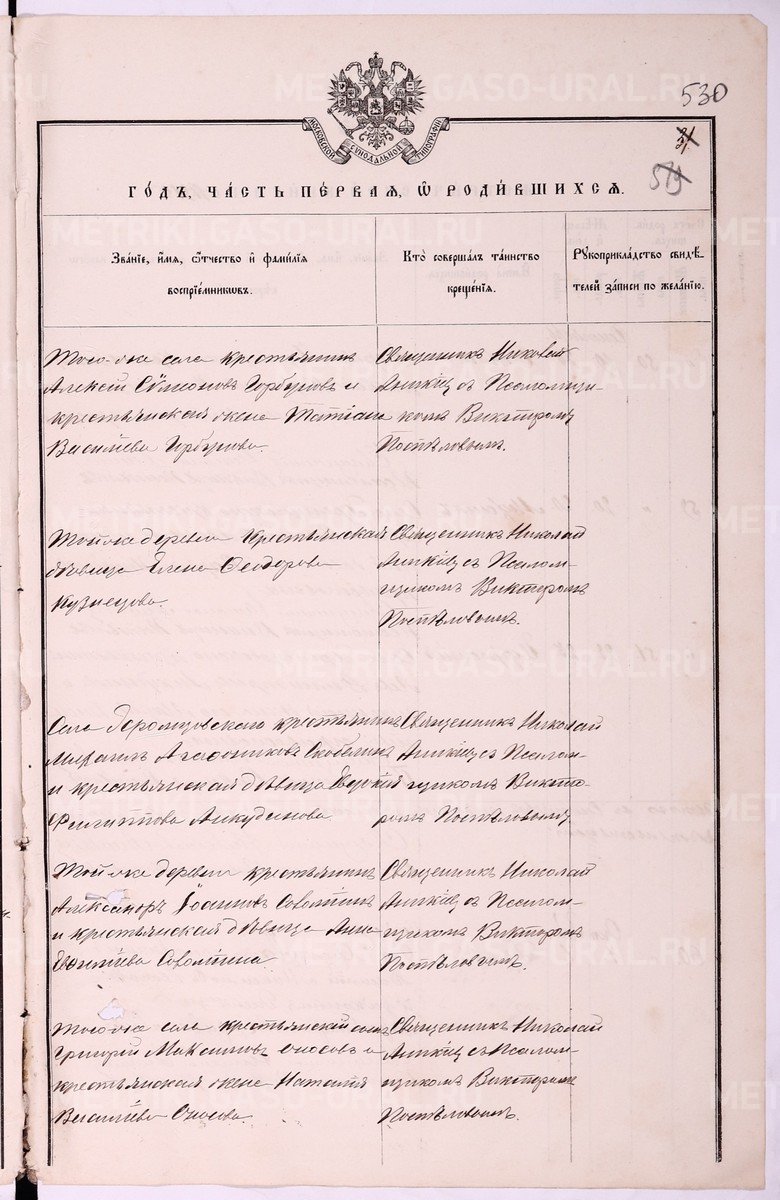 530
31
519
МОСКОВСКОЙ СѴНОДАЛЬНОЙ ТИПОГРАФІИ
ГО́ДЪ, ЧА́СТЬ ПЕ́РВАЯ, Ѿ РОДИ́ВШИХСЯ.
Зва́нїе, и҆́мя, ѻ҆́тчество и҆ фами́лїя
воспрїе́мникѡвъ.
Кто̀ соверша́лъ та́инство
креще́нїя.
Рꙋкоприкла́дство свидѣ́-
телей за́писи по жела́нїю.
Того-же села крестьянинъ
Алексѣй Сѷмеоновъ Горбуновъ и
крестьянская жена Татіана
Васильева Горбунова.
Священникъ Николай
съ Псаломщи
комъ Викторомъ
Поспѣловымъ.
Той-же деревни крестьянская
дѣвица Елена Ѳеодорова
Кузнецова.
Священникъ Николай
съ Псалом-
щикомъ Викторомъ
Поспѣловымъ.
Села крестьянинъ
Михаилъ Агафониковъ
и крестьянская дѣвица
Филиппова Анкудинова
Священникъ Николай
съ Псалом-
щикомъ Викто-
ромъ Поспѣловымъ
Той-же деревни крестьянинъ
Александръ Іосифовъ
и крестьянская дѣвица Анна
Священникъ Николай
съ Псалом-
щикомъ Викторомъ
Поспѣловымъ.
Того-же села крестьянскій сынъ
Григорій Максимовъ Оносовъ и
крестьянская жена Наталія
Васильева Оносова.
Священникъ Николай
съ Псалом-
щикомъ Викторомъ
Поспѣловымъ.
METRIKI.GASO-URAL.RU